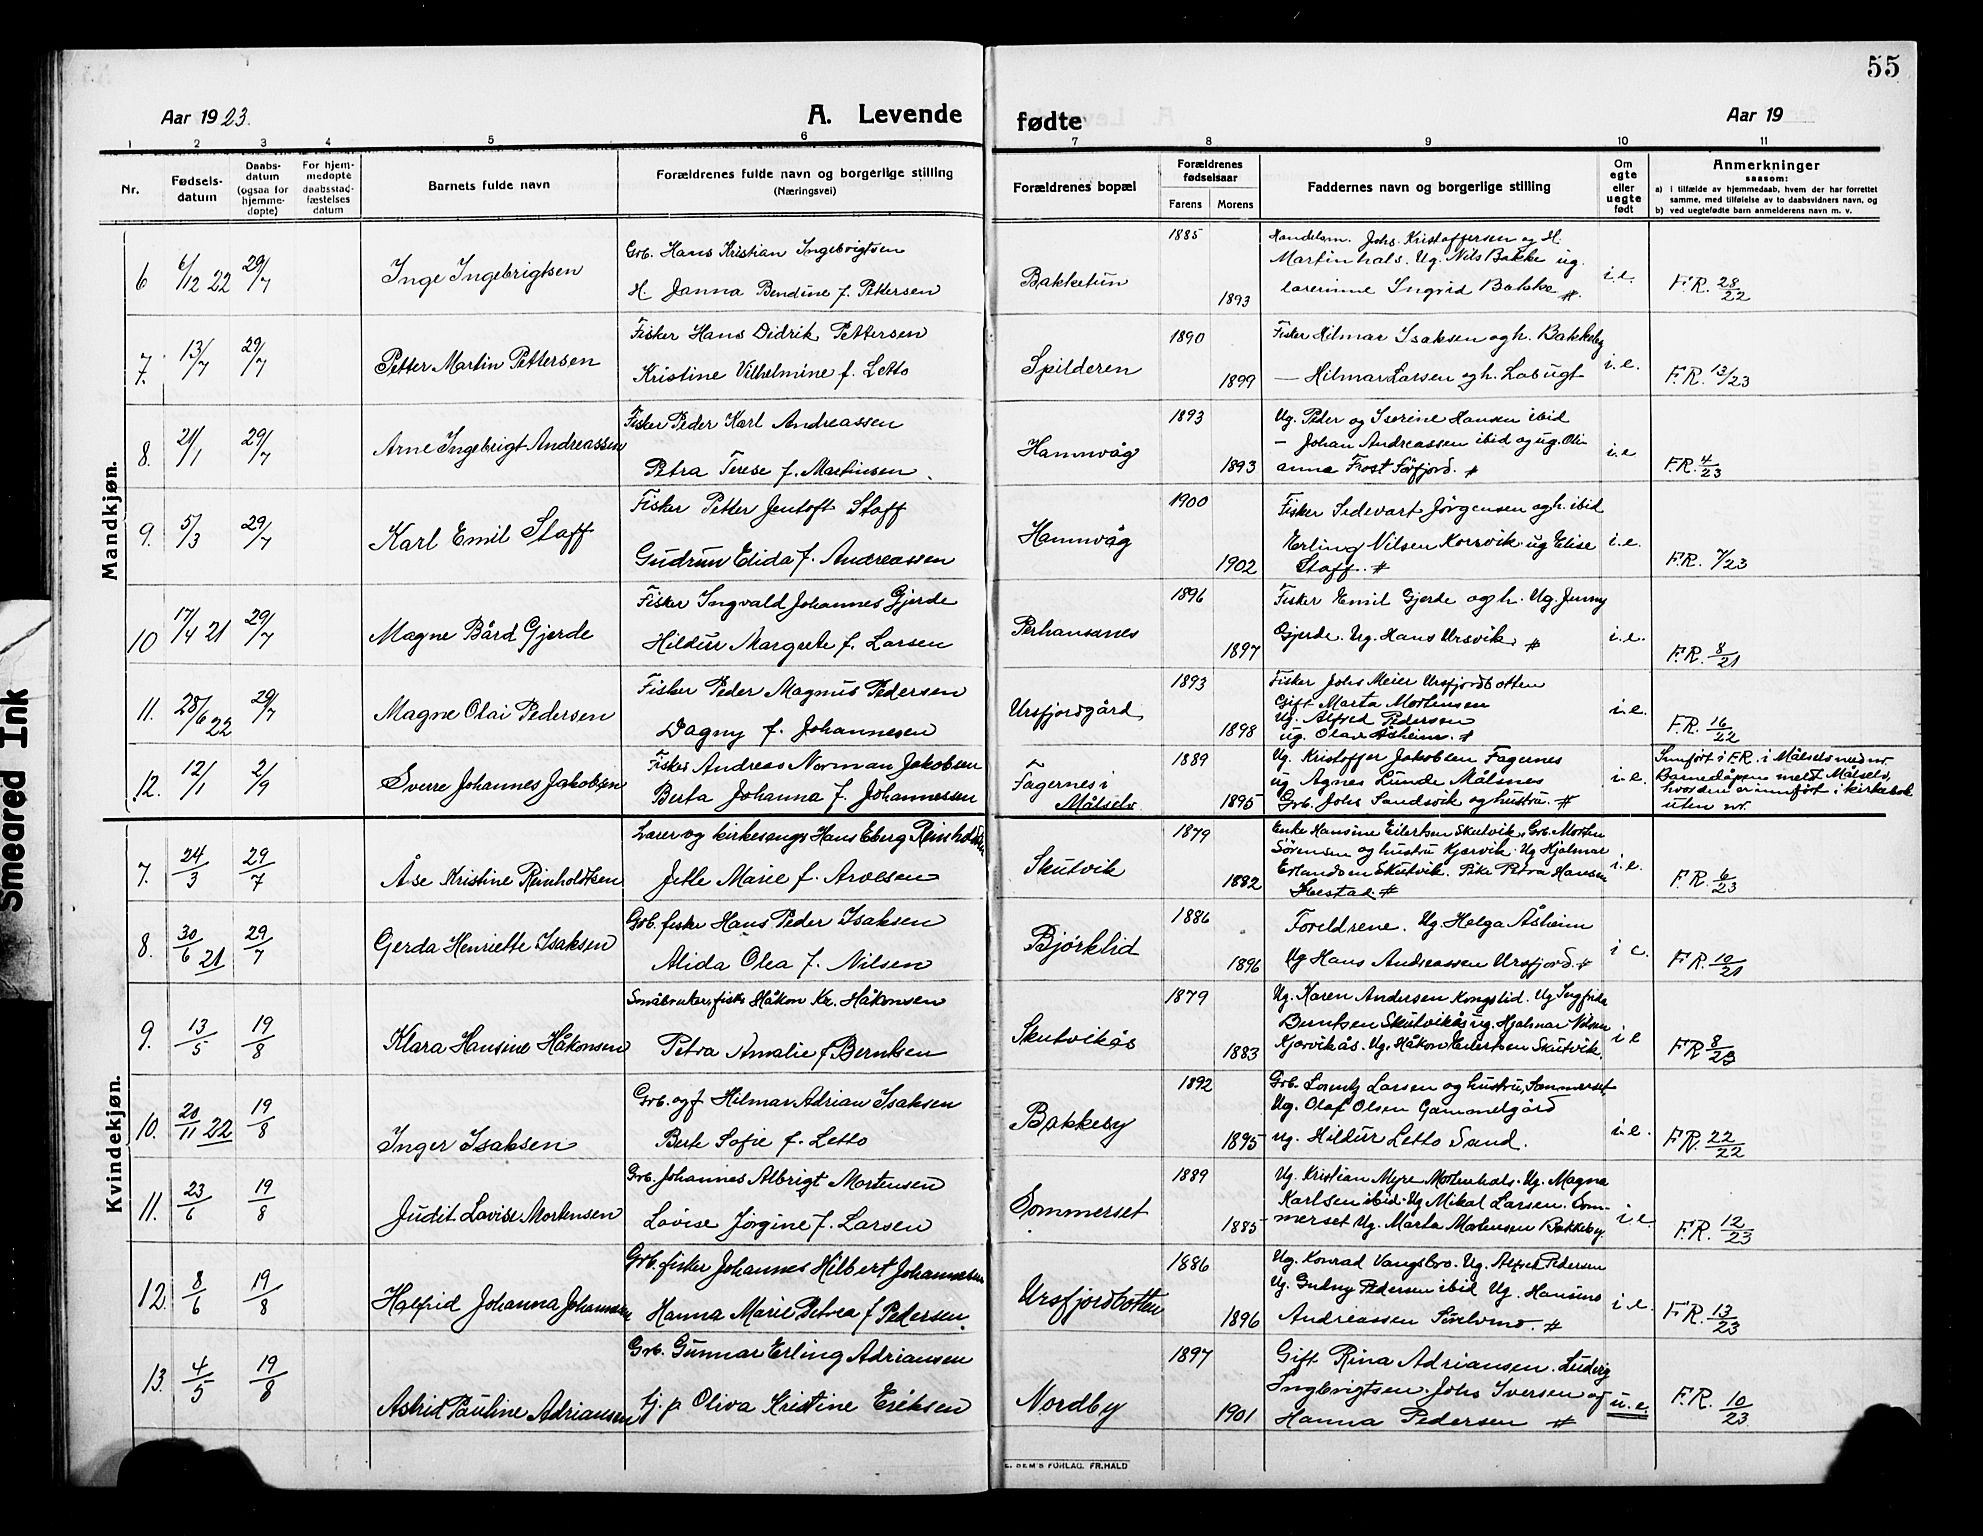 55
Aar 1923.
A. Levende
fødte
Aar 19
1 2 3 4 5 6 7 8 9 10 11
Nr.
Fødsels-
datum
Daabs-
datum
(ogsaa for
hjemme-
døpte)
For hjem-
medøpte
daabsstad-
fæstelses
datum
Barnets fulde navn
Forældrenes fulde navn og borgerlige stilling
(Næringsvei)
Forældrenes bopæl
Forældrenes
fødselsaar
Farens Morens
Faddernes navn og borgerlige stilling
Om
egte
eller
uegte
født
Anmerkninger
saasom:
a) i tilfælde av hjemmedaab, hvem der har forrettet
samme, med tilføielse av to daabsvidners navn, og
b) ved uegtefødte barn anmelderens navn m. v.
Mandkjøn.
6 6/12 22 29/7 Inge Ingebrigtsen
Grb. Hans Kristian Ingebrigtsen
H. Janna Bendine f. Pettersen
Bakketun 1885 1893
Handelsm. Johs. Kristoffersen og H.
Martinhals. Ug. Nils Bakke ug.
lærerinne Ingrid Bakke #.
i.e. F.R. 28/22
7. 13/7 29/7 Petter Martin Pettersen
Fisker Hans Didrik Pettersen
Kristine Vilhelmine f. Letto
Spilderen 1890 1899
Fisker Hilmar Isaksen og h. Bakkeby
— Hilmar Larsen og h. Labugt
i.e. F.R. 13/23
8. 21/1 29/7 Arne Ingebrigt Andreassen
Fisker Peder Karl Andreassen
Petra Terese f. Martinsen.
Hamnvåg 1893 1893
Ug. Peder og Iserine Hansen ibid
— Johan Andreassen ibid og ug. Oli-
anna Frost Sørfjord. #
i.e F.R. 4/23
9. 5/3 29/7 Karl Emil Staff
Fisker Petter Jentoft Staff
Gudrun Elida f. Andreassen
Hamnvåg 1900 1902
Fisker Sedevart Jørgensen og h. ibid
Erling Nilsen Korsvik ug Elise
Staff. #
i.e. F.R. 7/23
10 17/4 21 29/7 Magne Bård Gjerde
Fisker Ingvald Johannes Gjerde
Hildur Margrete f. Larsen
Perhansanes 1896 1897
Fisker Emil Gjerde og h. Ug. Jenny
Gjerde. Ug. Hans Ursvik. #
i.e. F.R. 8/21
11. 28/6 22 29/7 Magne Olai Pedersen
Fisker Peder Magnus Pedersen
Dagny f. Johannesen
Ursfjordgård 1893 1898
Fisker Johs Meier Ursfjordbotten
Gift Marta Mortensen
Ug. Alfred Pedersen
ug. Olav Åsheim. #
i.e. F.R. 16/22
12. 12/1 2/9 Sverre Johannes Jakobsen
Fisker Andreas Norman Jakobsen
Berta Johanna f. Johannessen
Fagernes i
Målselv 1889 1895
Ug. Kristoffer Jakobsen Fagernes
ug Agnes Lunde Målsnes
Grb. Johs Sandsvik og hustru. #
i.e. Innført i F.R. i Målselv
Barnedåpen meldt Målselv,
hvor den er innført i kirkebok
uten nr.
Kvindekjøn.
7. 24/3 29/7 Åse Kristine Reinholdtsen
Lærer og kirkesangr Hans Eberg Reinholdtsen
Jette Marie f. Arvesen
Skutvik 1879 1882
Enke Hansine Eilertsen Skutvik. Grb. Morten
Sørensen og hustru Kjærvik. Ug Hjalmar
Erlandsen Skutvik. Pike Petra Hansen
#
i.e. F.R. 6/23
8. 30/6 21 29/7 Gerda Henriette Isaksen
Grb. fisker Hans Peder Isaksen
Alida Olea f. Nilsen
Bjørklid 1886 1896
Foreldrene. Ug. Helga Åsheim
Ug Hans Andreassen Ursfjord. #
i e. F.R. 10/21
9. 13/5 19/8 Klara Hansine Håkonsen
Småbruker, fisk. Håkon Kr. Håkonsen
Petra Amalie f Berntsen
Skutvikås 1879 1883
Ug. Karen Andersen Kongslid. Ug Ingfrida
Berntsen Skutvikås ug. Hjalmar Nilsen
Kjærvikås. Ug. Håkon Eilertsen Skutvik.
i e F.R. 8/23
10. 20/11 22 19/8 Inger Isaksen
Grb. og f Hilmar Adrian Isaksen
Berte Sofie f. Letto
Bakkeby 1892 1895
Grb. Lorentz Larsen og hustru, Sommerset,
Ug. Olaf Olsen Gammelgård
ug. Hildur Letto Sand.
i.e. F.R. 22/22
11. 23/6 19/8 Judit Lovise Mortensen
Grb. Johannes Albrigt Mortensen
Lovise Jørgine f. Larsen
Sommerset 1889 1885
Ug. Kristian Myre Mortenhals. Ug. Magna
Karlsen ibid. Ug Mikal Larsen. Som-
merset Ug. Marta Mortensen Bakkeby.
i.e. F.R. 12/23
12. 8/6 19/8 Halfrid Johanna Johannesen
Grb. fisker Johannes Hilbert Johannesen
Hanna Marie Petrea f Pedersen.
Ursfjordbotten 1886 1896
Ug. Konrad Vangsbro. Ug. Alfred Pedersen
Ug. Gudny Pedersen ibid Ug. Hansine
Andreassen #
i.e. F.R. 13/23
13. 4/5 19/8 Astrid Pauline Adriansen
Grb. Gunnar Erling Adriansen
tj. p. Oliva Kristine Eriksen
Nordby 1897 1901
Gift Rina Adriansen. Ludvig
Ingebrigtsen. Johs Iversen og
Hanna Pedersen #
u.e. F.R. 10/23
E. SEM'S FORLAG. FR.HALD
Smeared Ink